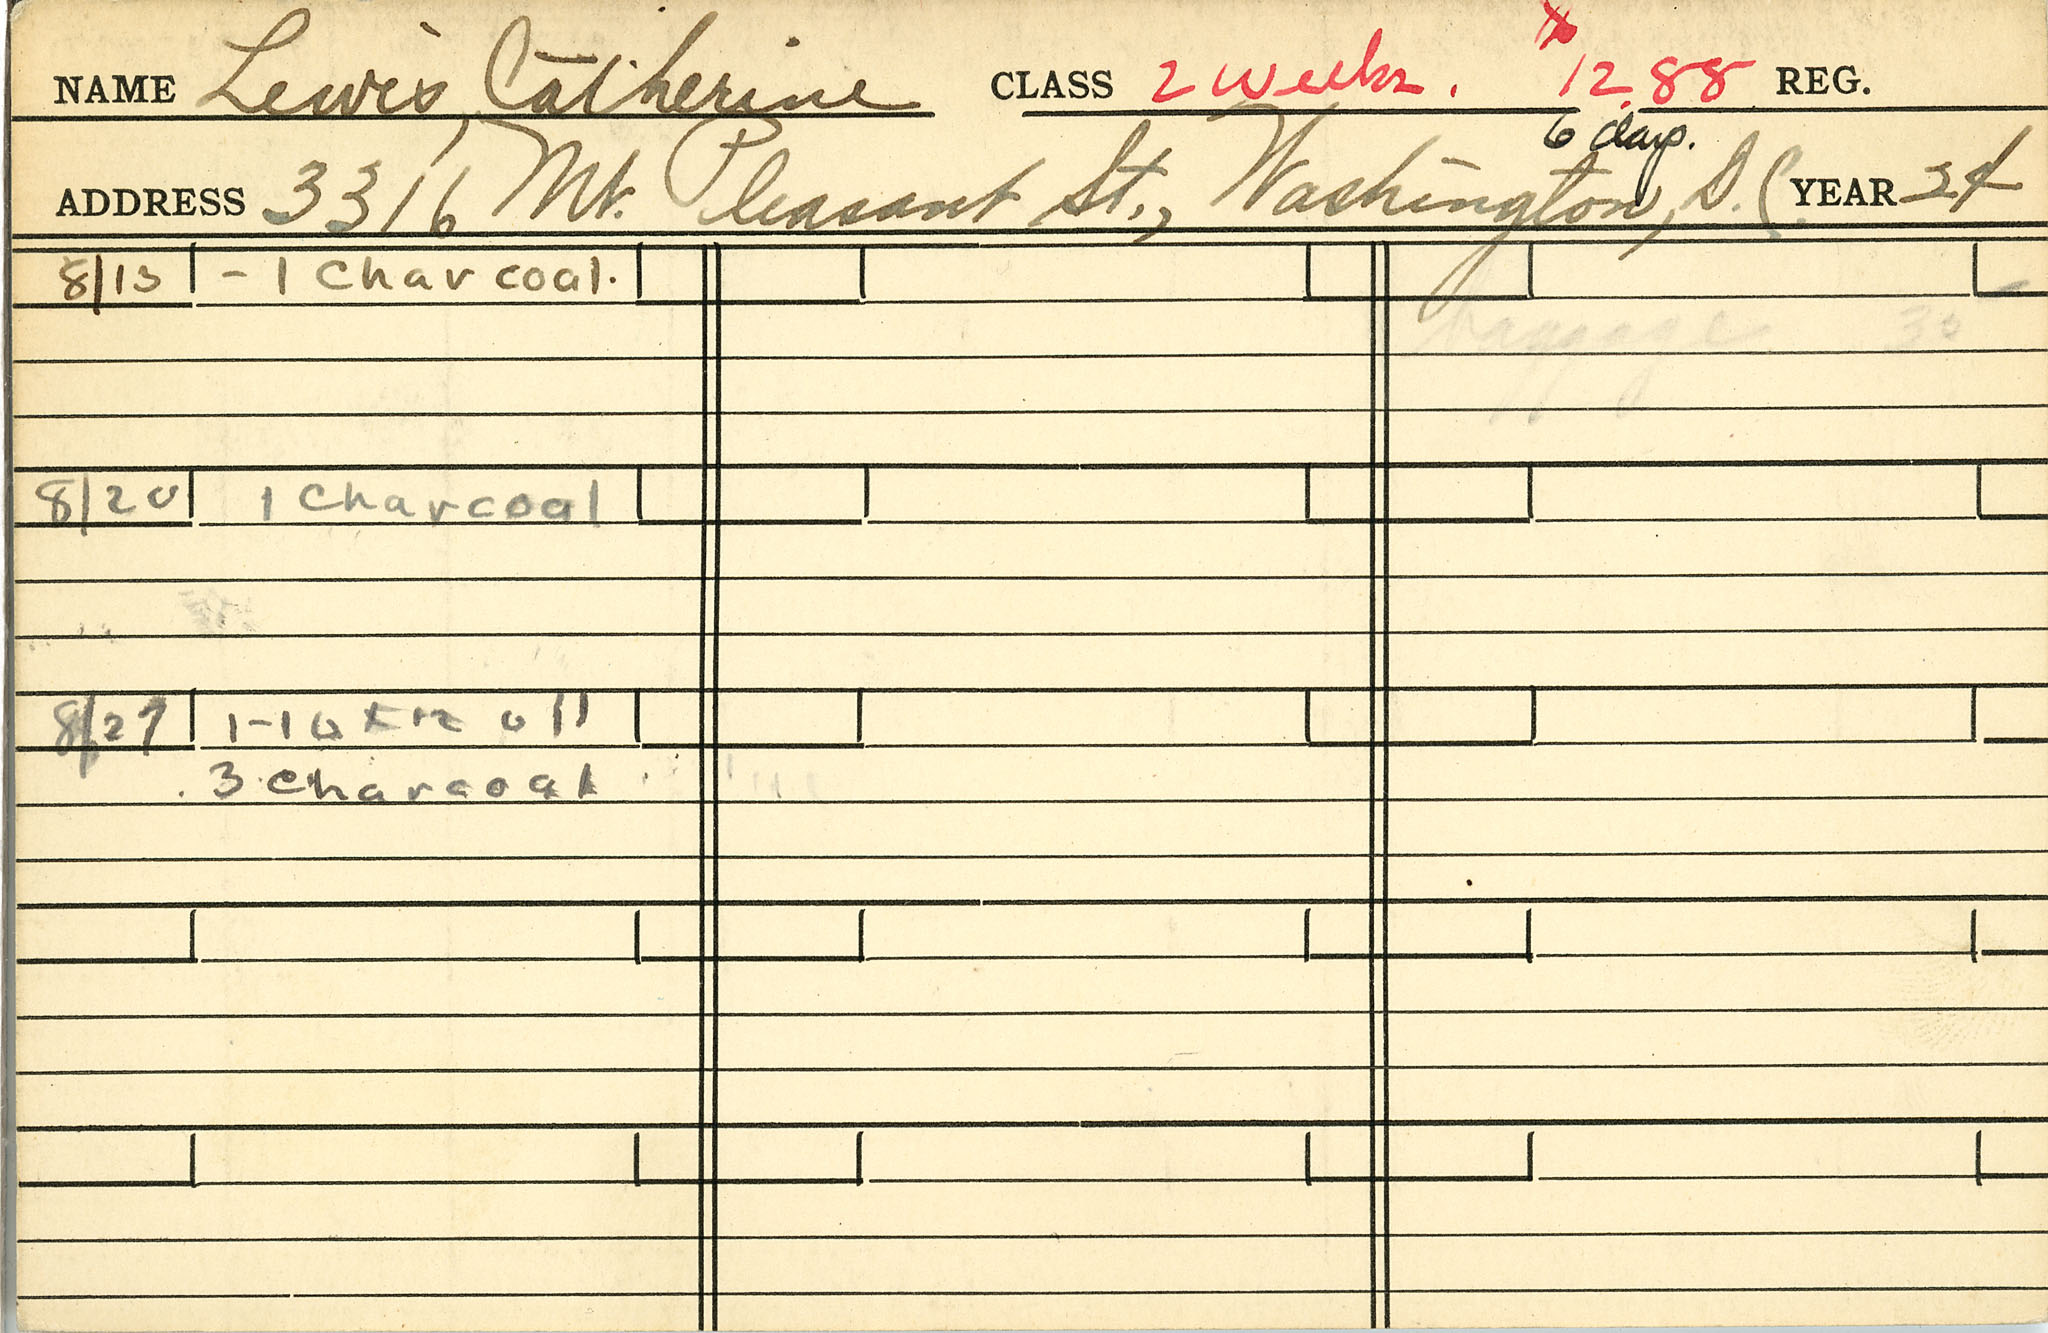 NAME Lewis, Catherine CLASS 2 weeks. 12.88 REG.
6 days.
ADDRESS 3316 Mt. Pleasant St., Washington, D.C. YEAR 34
8/13 - 1 Charcoal.
baggage 30
8/20 1 Charcoal
8/27 1-16x12 oil
3 charcoal